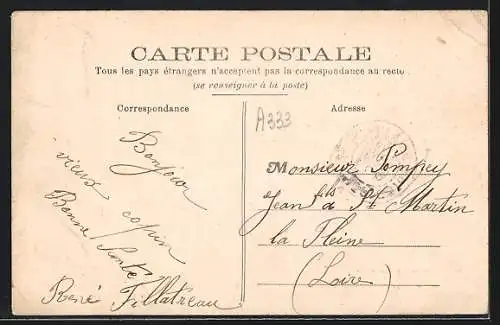 CARTE POSTALE
Tous les pays étrangers n'acceptent pas la correspondance au recto
(se renseigner à la poste)
Correspondance
Adresse
A333
Bonjour
vieux copin
Bonne Santé
René Fillatreau
Monsieur Pompey
Jean fils à St Martin
la Pleine
(Loire)